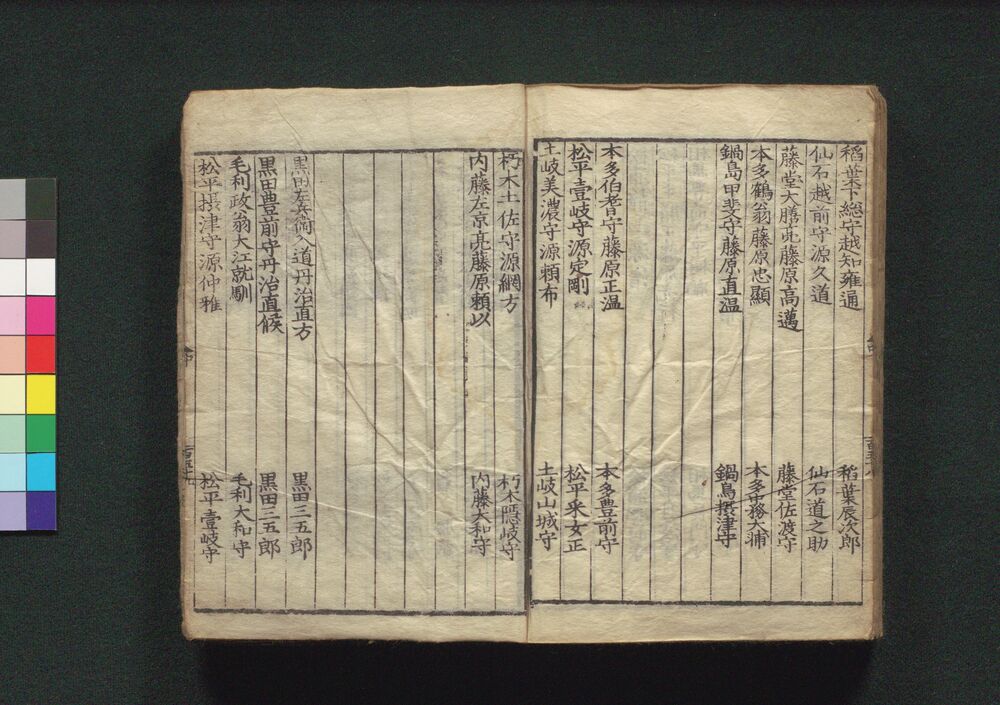 稲葉下総守越知雍通 稲葉辰次郎
仙石越前守源久道 仙石道之助
藤堂大膳亮藤原高邁 藤堂佐渡守
本多鶴翁藤原忠顯 本多中務大輔
鍋島甲斐守藤原直温 鍋島摂津守
本多伯耆守藤原正温 本多豊前守
松平壹岐守源定剛 松平采女正
土岐美濃守源頼布 土岐山城守
朽木土佐守源綱方 朽木隠岐守
内藤左京亮藤原頼以 内藤大和守
黒田左兵衛入道丹治直方 黒田三五郎
黒田豊前守丹治直候 黒田三五郎
毛利政翁大江就馴 毛利大和守
松平摂津守源仲雅 松平壹岐守